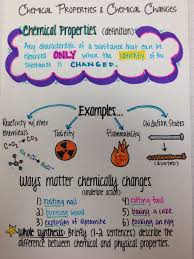 Chemical Properties & Chemical Changes
Chemical Properties (definition)
Any characteristic of a substance that can be
observed ONLY when the identity of the
substance is CHANGED.
Examples...
Reactivity w/ other chemicals
Toxicity
Flammability
Oxidation States
(rusted)
Ways matter chemically changes
(underline action)
1) rusting nail
2) burning wood
3) explosion of dynamite
4) rotting food
5) baking a cake
6) cooking an egg
Whole synthesis: Briefly (1-2 sentences) describe the
difference between chemical and physical properties.